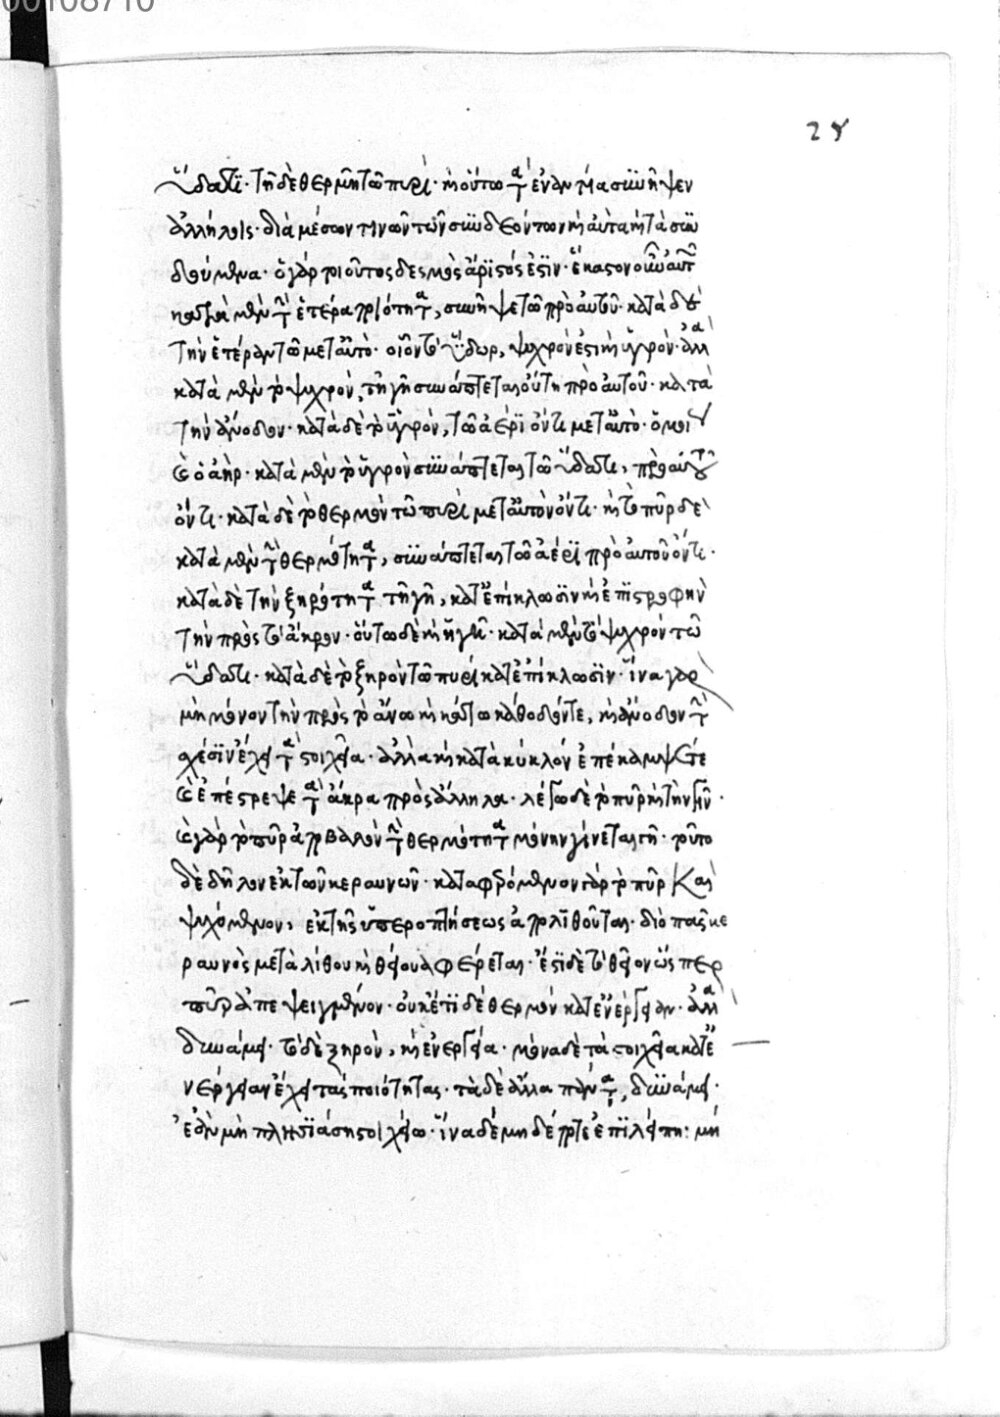 00108710
28
ὕδατι· τῇ δὲ θερμῇ τῶ πυρί· καὶ οὕτω τὰ ἐναντία συνῆψεν
ἀλλήλοις· διὰ μέσων τινῶν τῶν συνδεόντων καὶ αὐτὰ καὶ τὰ συν
δούμενα· ὁ γὰρ τοιοῦτος δεσμὸς ἄριστός ἐστιν· ἕκαστον οὖν αὐτῶν
κατὰ μὲν τὴν ἑτέραν ποιότητα, συνῆψε τῶ πρὸ αὐτοῦ· κατὰ δὲ
τὴν ἑτέραν τῶ μετ' αὐτό· οἷον τὸ ὕδωρ, ψυχρόν ἐστι καὶ ὑγρόν· ἀλλὰ
κατὰ μὲν τὸ ψυχρόν, τῇ γῇ συνάπτεται οὔσῃ πρὸ αὐτοῦ· κατὰ
τὴν ἄνοδον· κατὰ δὲ τὸ ὑγρόν, τῶ ἀέρι ὄντι μετ' αὐτό· ὁμοί
ως ὁ ἀὴρ· κατὰ μὲν τὸ ὑγρὸν συνάπτεται τῶ ὕδατι, πρὸ αὐτοῦ
ὄντι· κατὰ δὲ τὸ θερμὸν τῶ πυρὶ μετ' αὐτὸν ὄντι· καὶ τὸ πῦρ δὲ
κατὰ μὲν τὴν θερμότητα, συνάπτεται τῶ ἀέρι πρὸ αὐτοῦ ὄντι·
κατὰ δὲ τὴν ξηρότητα τῇ γῇ, κατ' ἐπίκλωσιν καὶ ἐπιστροφὴν
τὴν πρὸς τὸ ἄκρον· οὕτω δὲ καὶ ἡ γῆ· κατὰ μὲν τὸ ψυχρὸν τῶ
ὕδατι· κατὰ δὲ τὸ ξηρὸν τῶ πυρὶ κατ' ἐπίκλωσιν· ἵνα γὰρ
μὴ μόνον τὴν πρὸς τὸ ἄνω καὶ κάτω κάθοδόν τε, καὶ ἄνοδον τὴν
σχέσιν ἔχῃ τὰ στοιχεῖα· ἀλλὰ καὶ κατὰ κύκλον ἐπέκαμψέ τε
καὶ ἐπέστρεψε τὰ ἄκρα πρὸς ἄλληλα· λέγω δὲ τὸ πῦρ καὶ τὴν γῆν·
καὶ γὰρ τὸ πῦρ ἀποβαλὸν τὴν θερμότητα μόνην γίνεται γῆ· τοῦτο
δὲ δῆλον ἐκ τῶν κεραυνῶν· καταφερόμενον γὰρ τὸ πῦρ καὶ
ψυχόμενον, ἐκ τῆς ὑπεροπτήσεως ἀπολιθοῦται· διὸ πᾶς κε
ραυνὸς μετὰ λίθου καὶ θείου καταφέρεται· ἔστι δὲ τὸ θεῖον ὥσπερ
πῦρ ἀπεψυγμένον· οὐκέτι δὲ θερμὸν κατ' ἐνέργειαν· ἀλλὰ
δυνάμει· τὸ δὲ ξηρόν, καὶ ἐνεργεία· μόνα δὲ τὰ στοιχεῖα κατ' ἐ
νέργειαν ἔχει τὰς ποιότητας· τὰ δὲ ἄλλα πάντα, δυνάμει·
ἐὰν μὴ πλησιάσῃ στοιχείω· ἵνα δὲ μηδέποτε ἐπιλείπη· μή